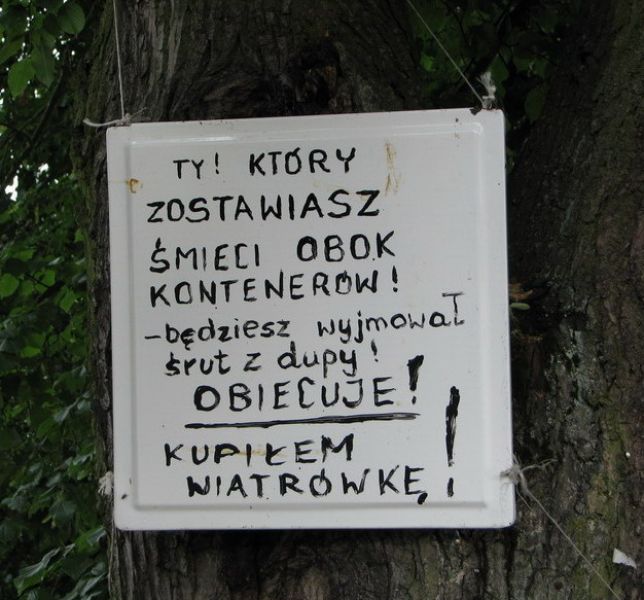 TY! KTÓRY
ZOSTAWIASZ
ŚMIECI OBOK
KONTENERÓW!
-będziesz wyjmował
śrut z dupy!
OBIECUJE!
KUPIŁEM
WIATRÓWKĘ!